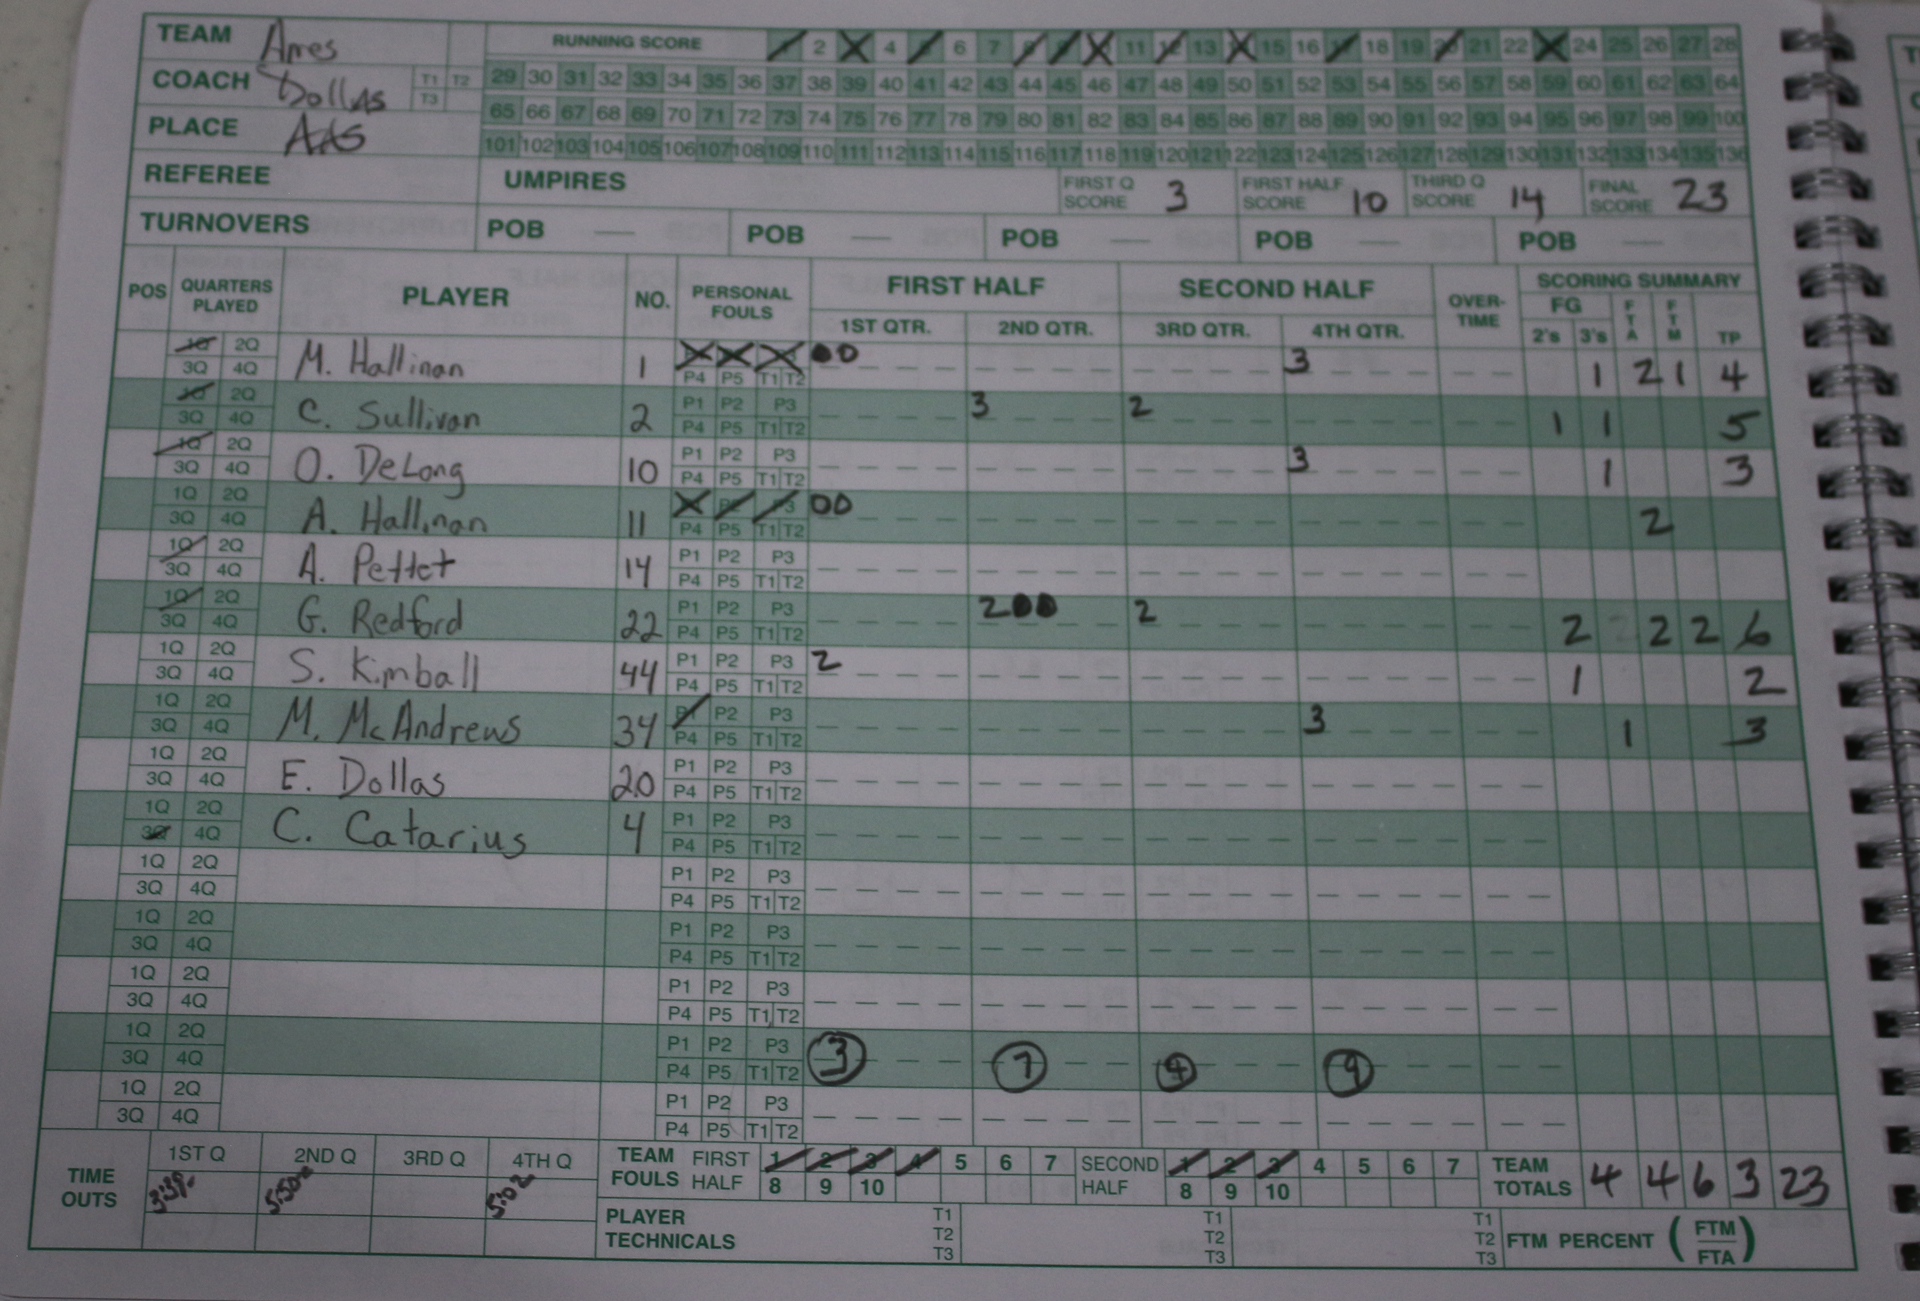 TEAM Ames RUNNING SCORE 1 2 3 4 5 6 7 8 9 10 11 12 13 14 15 16 17 18 19 20 21 22 23 24 25 26 27 28
COACH Dollas T1 T2 T3 29 30 31 32 33 34 35 36 37 38 39 40 41 42 43 44 45 46 47 48 49 50 51 52 53 54 55 56 57 58 59 60 61 62 63 64
PLACE AAS 65 66 67 68 69 70 71 72 73 74 75 76 77 78 79 80 81 82 83 84 85 86 87 88 89 90 91 92 93 94 95 96 97 98 99 100
101 102 103 104 105 106 107 108 109 110 111 112 113 114 115 116 117 118 119 120 121 122 123 124 125 126 127 128 129 130 131 132 133 134 135 136
REFEREE UMPIRES FIRST Q SCORE 3 FIRST HALF SCORE 10 THIRD Q SCORE 14 FINAL SCORE 23
TURNOVERS POB — POB — POB — POB — POB —
POS QUARTERS PLAYED PLAYER NO. PERSONAL FOULS FIRST HALF SECOND HALF OVER-TIME SCORING SUMMARY
1ST QTR. 2ND QTR. 3RD QTR. 4TH QTR. FG 2's 3's FTA FTM TP
1Q 2Q M. Hallinan 1 00 3 1 2 1 4
3Q 4Q P4 P5 T1 T2
1Q 2Q C. Sullivan 2 P1 P2 P3 3 2 1 1 5
3Q 4Q P4 P5 T1 T2
1Q 2Q O. DeLong 10 P1 P2 P3 3 1 3
3Q 4Q P4 P5 T1 T2
1Q 2Q A. Hallinan 11 P2 P3 00 2
3Q 4Q P4 P5 T1 T2
1Q 2Q A. Pettet 14 P1 P2 P3
3Q 4Q P4 P5 T1 T2
1Q 2Q G. Redford 22 P1 P2 P3 200 2 2 2 2 6
3Q 4Q P4 P5 T1 T2
1Q 2Q S. Kimball 44 P1 P2 P3 2 1 2
3Q 4Q P4 P5 T1 T2
1Q 2Q M. McAndrews 34 P1 P2 P3 3 1 3
3Q 4Q P4 P5 T1 T2
1Q 2Q E. Dollas 20 P1 P2 P3
3Q 4Q P4 P5 T1 T2
1Q 2Q C. Catarius 4 P1 P2 P3
3Q 4Q P4 P5 T1 T2
1Q 2Q P1 P2 P3
3Q 4Q P4 P5 T1 T2
1Q 2Q P1 P2 P3
3Q 4Q P4 P5 T1 T2
1Q 2Q P1 P2 P3
3Q 4Q P4 P5 T1 T2
1Q 2Q P1 P2 P3 3 7 4 9
3Q 4Q P4 P5 T1 T2
1Q 2Q P1 P2 P3
3Q 4Q P4 P5 T1 T2
TIME OUTS 1ST Q 2ND Q 3RD Q 4TH Q TEAM FOULS FIRST HALF 1 2 3 4 5 6 7 SECOND HALF 1 2 3 4 5 6 7 TEAM TOTALS 4 4 6 3 23
5:02 8 9 10 8 9 10
PLAYER TECHNICALS T1 T2 T3 T1 T2 T3 T1 T2 T3 FTM PERCENT (FTM/FTA)